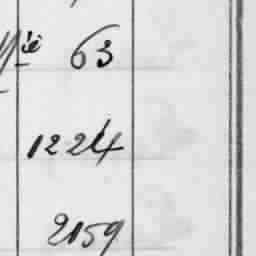 63
1224
2159